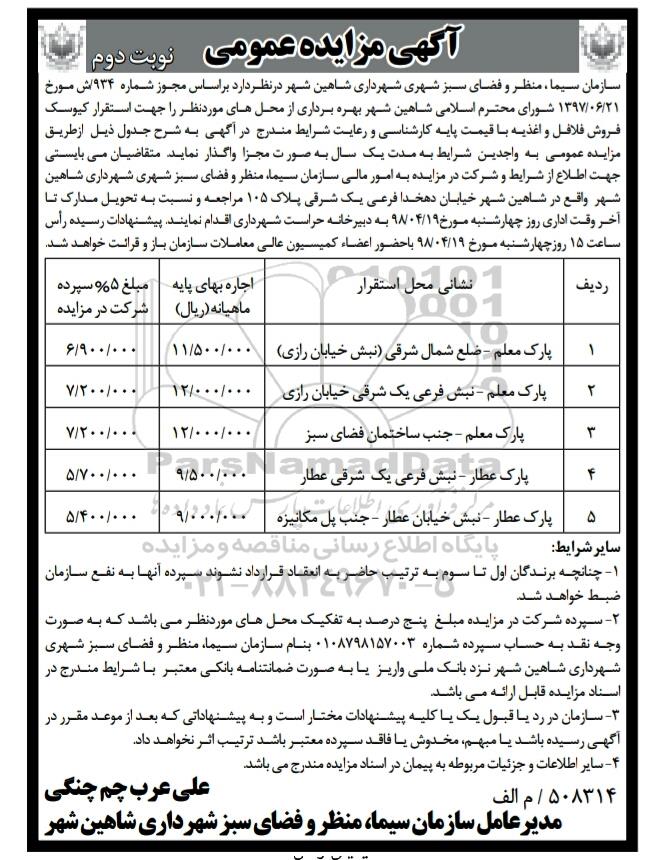 آگهی مزایده عمومی
نوبت دوم
سازمان سیما، منظر و فضای سبز شهری شهرداری شاهین شهر درنظردارد براساس مجوز شماره ۹۳۴/ش مورخ
۱۳۹۷/۰۶/۲۱ شورای محترم اسلامی شاهین شهر بهره برداری از محل های موردنظر را جهت استقرار کیوسک
فروش فلافل و اغذیه با قیمت پایه کارشناسی و رعایت شرایط مندرج در آگهی به شرح جدول ذیل ازطریق
مزایده عمومی به واجدین شرایط به مدت یک سال به صورت مجزا واگذار نماید. متقاضیان می بایستی
جهت اطلاع از شرایط و شرکت در مزایده به امور مالی سازمان سیما، منظر و فضای سبز شهری شهرداری شاهین
شهر واقع در شاهین شهر خیابان دهخدا فرعی یک شرقی پلاک ۱۰۵ مراجعه و نسبت به تحویل مدارک تا
آخر وقت اداری روز چهارشنبه مورخ ۹۸/۰۴/۱۹ به دبیرخانه حراست شهرداری اقدام نمایند. پیشنهادات رسیده رأس
ساعت ۱۵ روزچهارشنبه مورخ ۹۸/۰۴/۱۹ باحضور اعضاء کمیسیون عالی معاملات سازمان باز و قرائت خواهد شد.
ردیف نشانی محل استقرار اجاره بهای پایه ماهیانه(ریال) مبلغ ۵%سپرده شرکت در مزایده
۱ پارک معلم -ضلع شمال شرقی (نبش خیابان رازی) ۱۱/۵۰۰/۰۰۰ ۶/۹۰۰/۰۰۰
۲ پارک معلم -نبش فرعی یک شرقی خیابان رازی ۱۲/۰۰۰/۰۰۰ ۷/۲۰۰/۰۰۰
۳ پارک معلم - جنب ساختمان فضای سبز ۱۲/۰۰۰/۰۰۰ ۷/۲۰۰/۰۰۰
۴ پارک عطار - نبش فرعی یک شرقی عطار ۹/۵۰۰/۰۰۰ ۵/۷۰۰/۰۰۰
۵ پارک عطار - نبش خیابان عطار - جنب پل مکانیزه ۹/۰۰۰/۰۰۰ ۵/۴۰۰/۰۰۰
ParsNamadData
پایگاه اطلاع رسانی مناقصه و مزایده
۰۲۱-۸۸۳۴۹۶۷۰-۵
سایر شرایط:
۱- چنانچه برندگان اول تا سوم به ترتیب حاضر به انعقاد قرارداد نشوند سپرده آنها به نفع سازمان
ضبط خواهد شد.
۲- سپرده شرکت در مزایده مبلغ پنج درصد به تفکیک محل های موردنظر می باشد که به صورت
وجه نقد به حساب سپرده شماره ۰۱۰۸۷۹۸۱۵۷۰۰۳ بنام سازمان سیما، منظر و فضای سبز شهری
شهرداری شاهین شهر نزد بانک ملی واریز یا به صورت ضمانتنامه بانکی معتبر با شرایط مندرج در
اسناد مزایده قابل ارائه می باشد.
۳- سازمان در رد یا قبول یک یا کلیه پیشنهادات مختار است و به پیشنهاداتی که بعد از موعد مقرر در
آگهی رسیده باشد یا مبهم، مخدوش یا فاقد سپرده معتبر باشد ترتیب اثر نخواهد داد.
۴- سایر اطلاعات و جزئیات مربوطه به پیمان در اسناد مزایده مندرج می باشد.
۵۰۸۳۱۴ / م الف
علی عرب چم چنگی
مدیرعامل سازمان سیما، منظر و فضای سبز شهرداری شاهین شهر